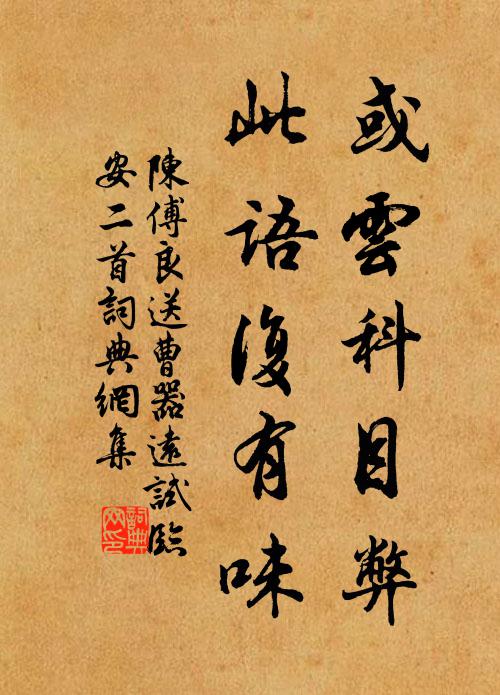 或雲科目弊
此語復有味
陳傅良送曹器遠試臨
安二首詞典網集
詞典網印